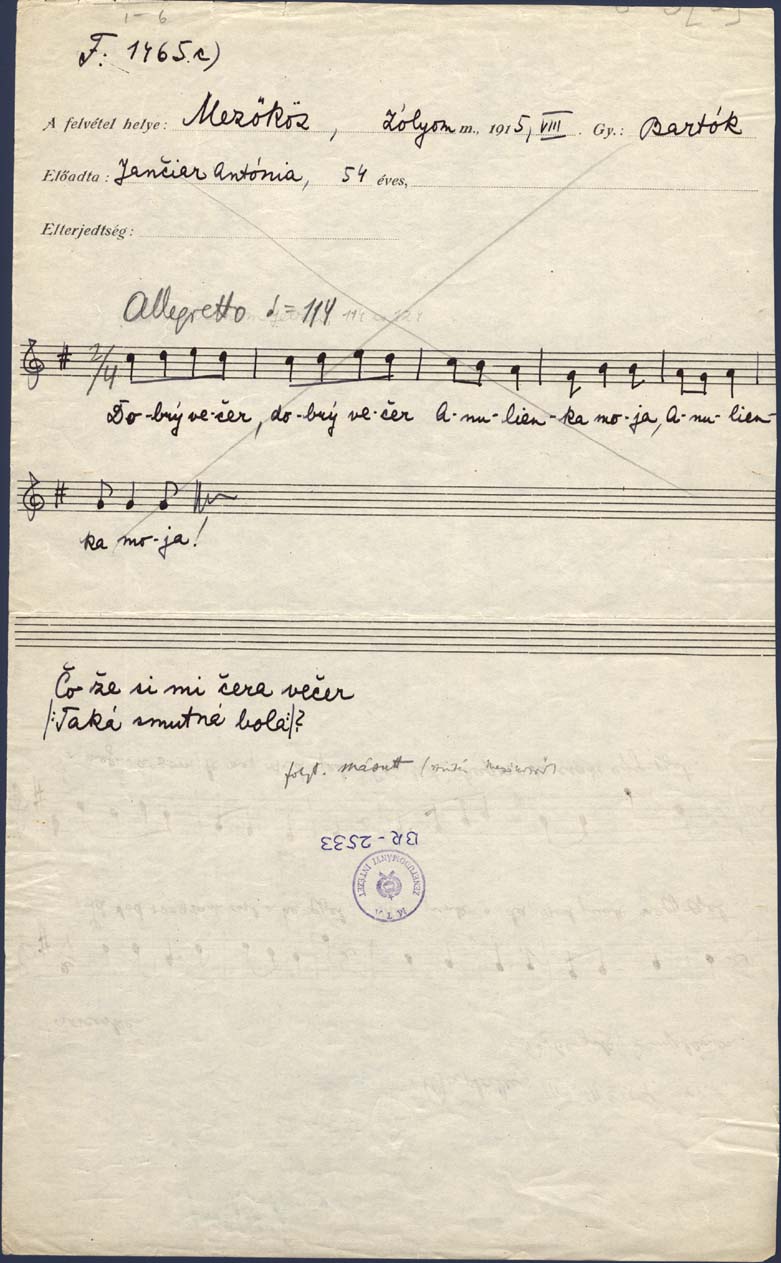 1-6
F. 1465.c)
A felvétel helye: Mezőkösz, Zólyom m., 1915, VIII. Gy.: Bartók
Előadta: Jančiar Antónia, 54 éves,
Elterjedtség:
Allegretto ♩ = 114
2/4
Do-brý ve-čer, do-brý ve-čer A-nu-lien-ka mo-ja, A-nu-lien-
ka mo-ja!
Čo že si mi čera večer
|:Taká smutná bola:|?
folyt. másutt
BR-2533
M T A ZENETUDOMÁNYI INTÉZET